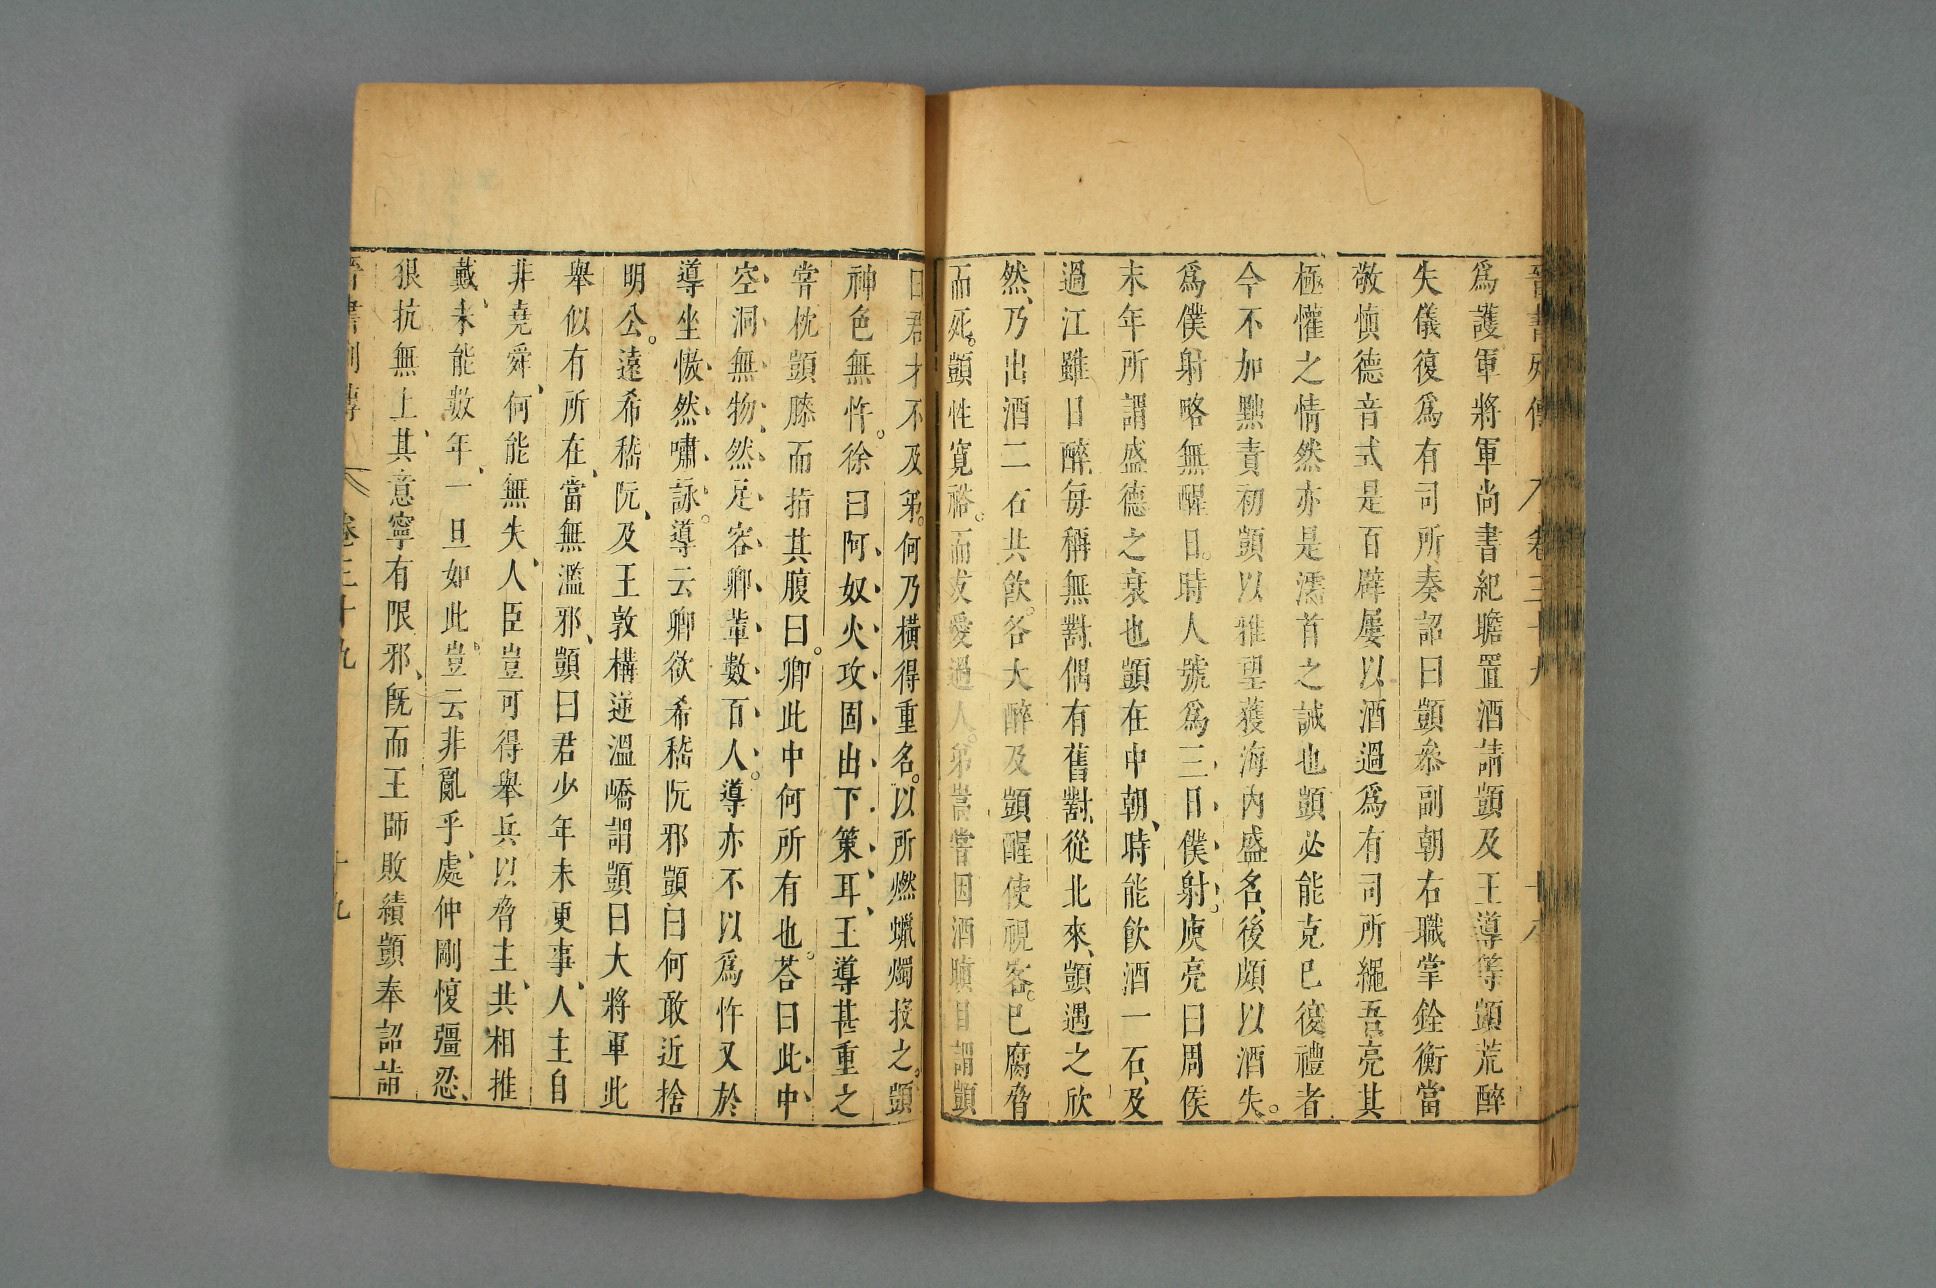 晉書列傳 卷三十九 十八
爲護軍將軍尚書紀瞻置酒請顗及王導等顗荒醉
失儀復爲有司所奏詔曰顗叅副朝右職掌銓衡當
敬慎德音式是百辟屢以酒過爲有司所繩吾亮其
極懽之情然亦是濡首之誡也顗必能克已復禮者
今不加黜責初顗以雅望獲海內盛名、後頗以酒失。
爲僕射略無醒日。時人號爲三日僕射。庾亮曰周侯
末年所謂盛德之衰也顗在中朝、時能飲酒一石、及
過江雖日醉、每稱無對、偶有舊對、從北來、顗遇之欣
然、乃出酒二石共飲。各大醉及顗醒使視客。已腐脅
而死。顗性寬裕。而友愛過人。弟嵩嘗因酒瞋目謂顗
曰君才不及弟。何乃橫得重名。以所燃蠟燭投之。顗
神色無忤。徐曰阿奴火攻固出下策耳、王導甚重之
嘗枕顗膝而指其腹曰。卿此中何所有也。荅曰此中
空洞無物、然足容卿輩數百人。導亦不以爲忤又於
導坐慠然嘯詠。導云卿欲希嵇阮邪顗曰何敢近捨
明公。遠希嵇阮、及王敦構逆溫嶠謂顗曰大將軍此
舉似有所在、當無濫邪、顗曰君少年未更事、人主自
非堯舜、何能無失、人臣豈可得舉兵以脅主、共相推
戴、未能數年、一旦如此。豈云非亂乎、處仲剛愎彊忍、
狼抗無上、其意寧有限邪、旣而王師敗績顗奉詔詣
晉書列傳 卷三十九 十九